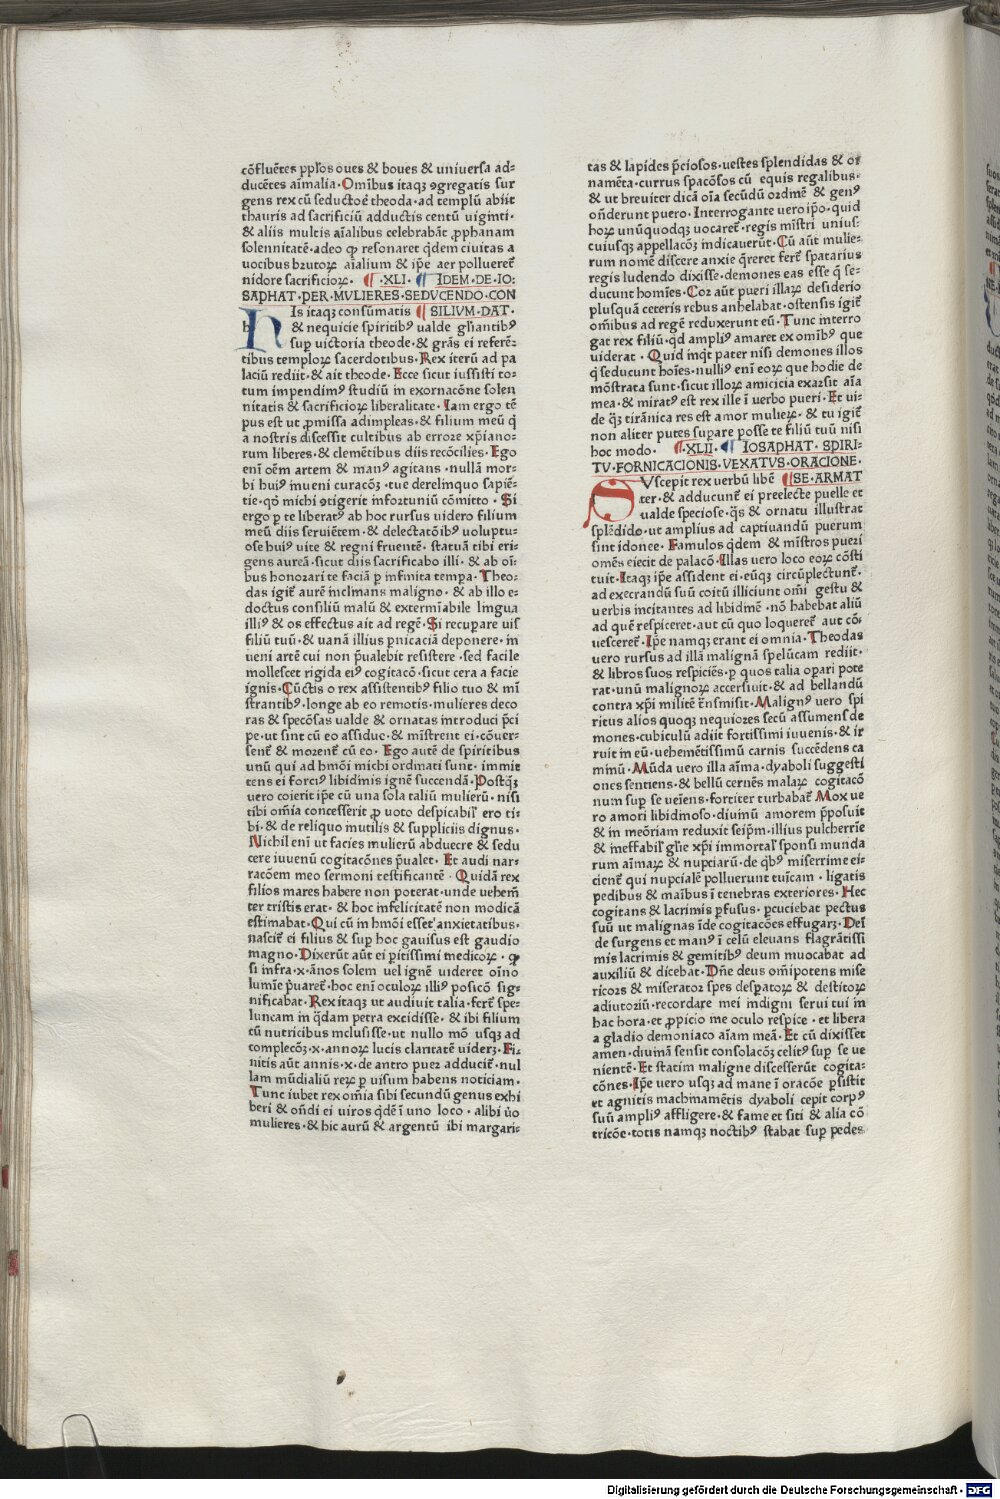 cōfluētes pplos oues & boues & uniuersa ad-
ducētes aīmalia. Omībus itaqȝ ꝯgregatis sur
gens rex cū seductoē theoda. ad templū abiit
thauris ad sacrificiū adductis centū uiginti.
& aliis multis aīalibus celebrabāt ꝓphanam
solennitatē. adeo ꝙ resonaret q̄dem ciuitas a
uocibus brutoꝝ aīalium & ip̄e aer pollueret᷑
nidore sacrificioꝝ. ¶ .XLI. ¶ IDEM. DE. IO:
SAPHAT. PER. MVLIERES. SEDVCENDO. CON
His itaqȝ consūmatis ¶ SILIVM. DAT.
& nequicie spiritibꝰ ualde gl̄iantibꝰ
sup uictoria theode. & grās ei referē-
tibus temploꝝ sacerdotibus. Rex iterū ad pa
laciū rediit. & ait theode. Ecce sicut iussisti to-
tum impendimꝰ studiū in exornacōne solen
nitatis & sacrificioꝝ liberalitate. Iam ergo tē
pus est ut ꝓmissa adimpleas. & filium meū q̄
a nostris discessit cultibus ab errore xp̄iano-
rum liberes. & clemētibus diis recōcilies. Ego
enī oēm artem & manꝰ agitans. nullā mor-
bi huiꝰ īnueni curacōꝫ. tue derelinquo sapiē-
tie. qd̓ michi ꝯtigerit īnfortuniū cōmitto. Si
ergo ꝑ te liberatꝰ ab hoc rursus uidero filium
meū diis seruiētem. & delectatōibꝰ uoluptu-
ose huiꝰ uite & regni fruentē. statuā tibi eri-
gens aureā. sicut diis sacrificabo illi. & ab oī-
bus honorari te faciā ꝑ īnfinita tempa. Theo-
das igit᷑ aurē īnclinans maligno. & ab illo e-
doctus consiliū malū & extermīabile lingua
illiꝰ & os effectus ait ad regē. Si recuꝑare uis
filiū tuū. & uanā illius ꝑnicaciā deponere. in
ueni artē cui non p̄ualebit resistere. sed facile
mollescet rigida eiꝰ cogitacō. sicut cera a facie
ignis. Cūctis o rex assistentibꝰ filio tuo & mī
strantibꝰ. longe ab eo remotis. mulieres deco
ras & specōsas ualde & ornatas introduci p̄ci
pe. ut sint cū eo assidue. & mīstrent ei. cōuer-
sent᷑ & morent᷑ cū eo. Ego autē de spiritibus
unū qui ad hmōi michi ordinati sunt. immit
tens ei forciꝰ libidinis ignē succendā. Postq̄ꝫ
uero coierit ip̄e cū una sola taliū mulierū. nisi
tibi om̄ia concesserit ꝓ uoto despicabil᷑ ero ti-
bi. & de reliquo inutilis & suppliciis dignus.
Nichil enī ut facies mulierū abducere & sedu
cere iuuenū cogitacōnes p̄ualet. Et audi nar-
racōem meo sermoni testificantē. Quidā rex
filios mares habere non poterat. unde uehem̄
ter tristis erat. & hoc infelicitatē non modicā
estimabat. Qui cū in hmōi esset anxietatibus.
nascit᷑ ei filius & sup hoc gauisus est gaudio
magno. Dixerūt aūt ei ꝑitissimi medicoꝝ. ꝙ
si infra. x. ānos solem uel ignē uideret oīno
lumīe p̄uaret᷑. hoc enī oculoꝝ illiꝰ posicō sig-
nificabat. Rex itaqȝ ut audiuit talia. fert᷑ spe-
luncam in q̄dam petra excidisse. & ibi filium
cū nutricibus inclusisse. ut nullo mō usqȝ ad
complecōꝫ. x. annoꝝ lucis claritatē uiderꝫ. Fi-
nitis aūt annis. x. de antro puer adducit᷑. nul
lam mūdialiū reꝝ ꝑ uisum habens noticiam.
Tunc iubet rex om̄ia sibi secundū genus exhi
beri & on̄di ei uiros qd̄ē ī uno loco. alibi u̓o
mulieres. & hic aurū & argentū ibi margari-
tas & lapides p̄ciosos. uestes splendidas & or
namēta. currus spacōsos cū equis regalibus.
& ut breuiter dicā oīa secūdū ordinē & genꝰ
on̄derunt puero. Interrogante uero ip̄o. quid
hoꝝ unūquodqȝ uocaret᷑. regis mīstri unius-
cuiusqȝ appellacōꝫ indicauerūt. Cū aūt mulie-
rum nomē discere anxie q̄reret fert᷑ spatarius
regis ludendo dixisse. demones eas esse q̄ se-
ducunt homīes. Cor aūt pueri illaꝝ desiderio
plusquā ceteris rebus anhelabat. ostensis igit᷑
om̄ibus ad regē reduxerunt eū. Tunc interro
gat rex filiū. qd ampliꝰ amaret ex omībꝰ que
uiderat. Quid inq̄t pater nisi demones illos
q̄ seducunt hoīes. nulliꝰ enī eoꝝ que hodie de
mōstrata sunt. sicut illoꝝ amicicia exarsit aīa
mea. & miratꝰ est rex ille ī uerbo pueri. Et ui-
de q̄ꝫ tirānica res est amor mulieꝝ. & tu igit᷑
non aliter putes supare posse te filiū tuū nisi
hoc modo. ¶ .XLII. ¶ IOSAPHAT. SPIRI-
TV. FORNICACIONIS. VEXATVS. ORACIONE.
SVscepit rex uerbū libē ¶ SE. ARMAT
ter. & adducunt᷑ ei preelecte puelle et
ualde speciose. q̄s & ornatu illustrat
splēdido. ut amplius ad captiuandū puerum
sint idonee. Famulos q̄dem & mīstros pueri
omēs eiecit de palacō. Illas uero loco eoꝝ cōsti
tuit. Itaqȝ ip̄e assident ei. eūqȝ circūplectunt᷑.
ad execrandū suū coitū illiciunt om̄i gestu &
uerbis incitantes ad libidinē. nō habebat aliū
ad quē respiceret. aut cū quo loqueret᷑ aut cō-
uesceret᷑. Ip̄e namqȝ erant ei omnia. Theodas
uero rursus ad illā malignā spelūcam rediit.
& libros suos respiciēs. ꝑ quos talia oꝑari pote
rat. unū malignoꝝ accersiuit. & ad bellandū
contra xp̄i militē trn̄smisit. Malignꝰ uero spi
ritus alios quoqȝ nequiores secū assumens de
mones. cubiculū adiit fortissimi iuuenis. & ir
ruit in eū. uehemētissimū carnis succēdens ca
minū. Mūda uero illa aīma. dyaboli suggesti
ones sentiens. & bellū cernēs malaꝝ cogitacō
num sup se ueīens. fortiter turbabat᷑ Mox ue
ro amori libidinoso. diuinū amorem p̄posuit
& in meōriam reduxit seip̄m. illius pulcherrīe
& ineffabil᷑ gl̄ie xp̄i immortal᷑ sponsi munda
rum aīmaꝝ & nupciarū. de qbꝰ miserrime ei-
cient᷑ qui nupcialē polluerunt tuīcam. ligatis
pedibus & maībus ī tenebras exteriores. Hec
cogitans & lacrimis ꝑfusus. ꝑcuciebat pectus
suū ut malignas īde cogitacōes effugarꝫ. Deī
de surgens et manꝰ ī celū eleuans flagrātissi
mis lacrimis & gemitibꝰ deum inuocabat ad
auxiliū & dicebat. Dn̄e deus om̄ipotens mise
ricors & miserator spes despatoꝝ & destitoꝝ
adiutoriū. recordare mei indigni serui tui in
hac hora. et ꝓpicio me oculo respice. et libera
a gladio demoniaco aīam meā. Et cū dixisset
amen. diuinā sensit consolacōꝫ celitꝰ sup se ue
nientē. Et statim maligne discesserūt cogita-
cōnes. Ip̄e uero usqȝ ad mane ī oracōe ꝑsistit
et agnitis machinamētis dyaboli cepit corpꝰ
suū ampliꝰ affligere. & fame et siti & alia cō
tricōe. totis namqȝ noctibꝰ stabat sup pedes
Digitalisierung gefördert durch die Deutsche Forschungsgemeinschaft - DFG